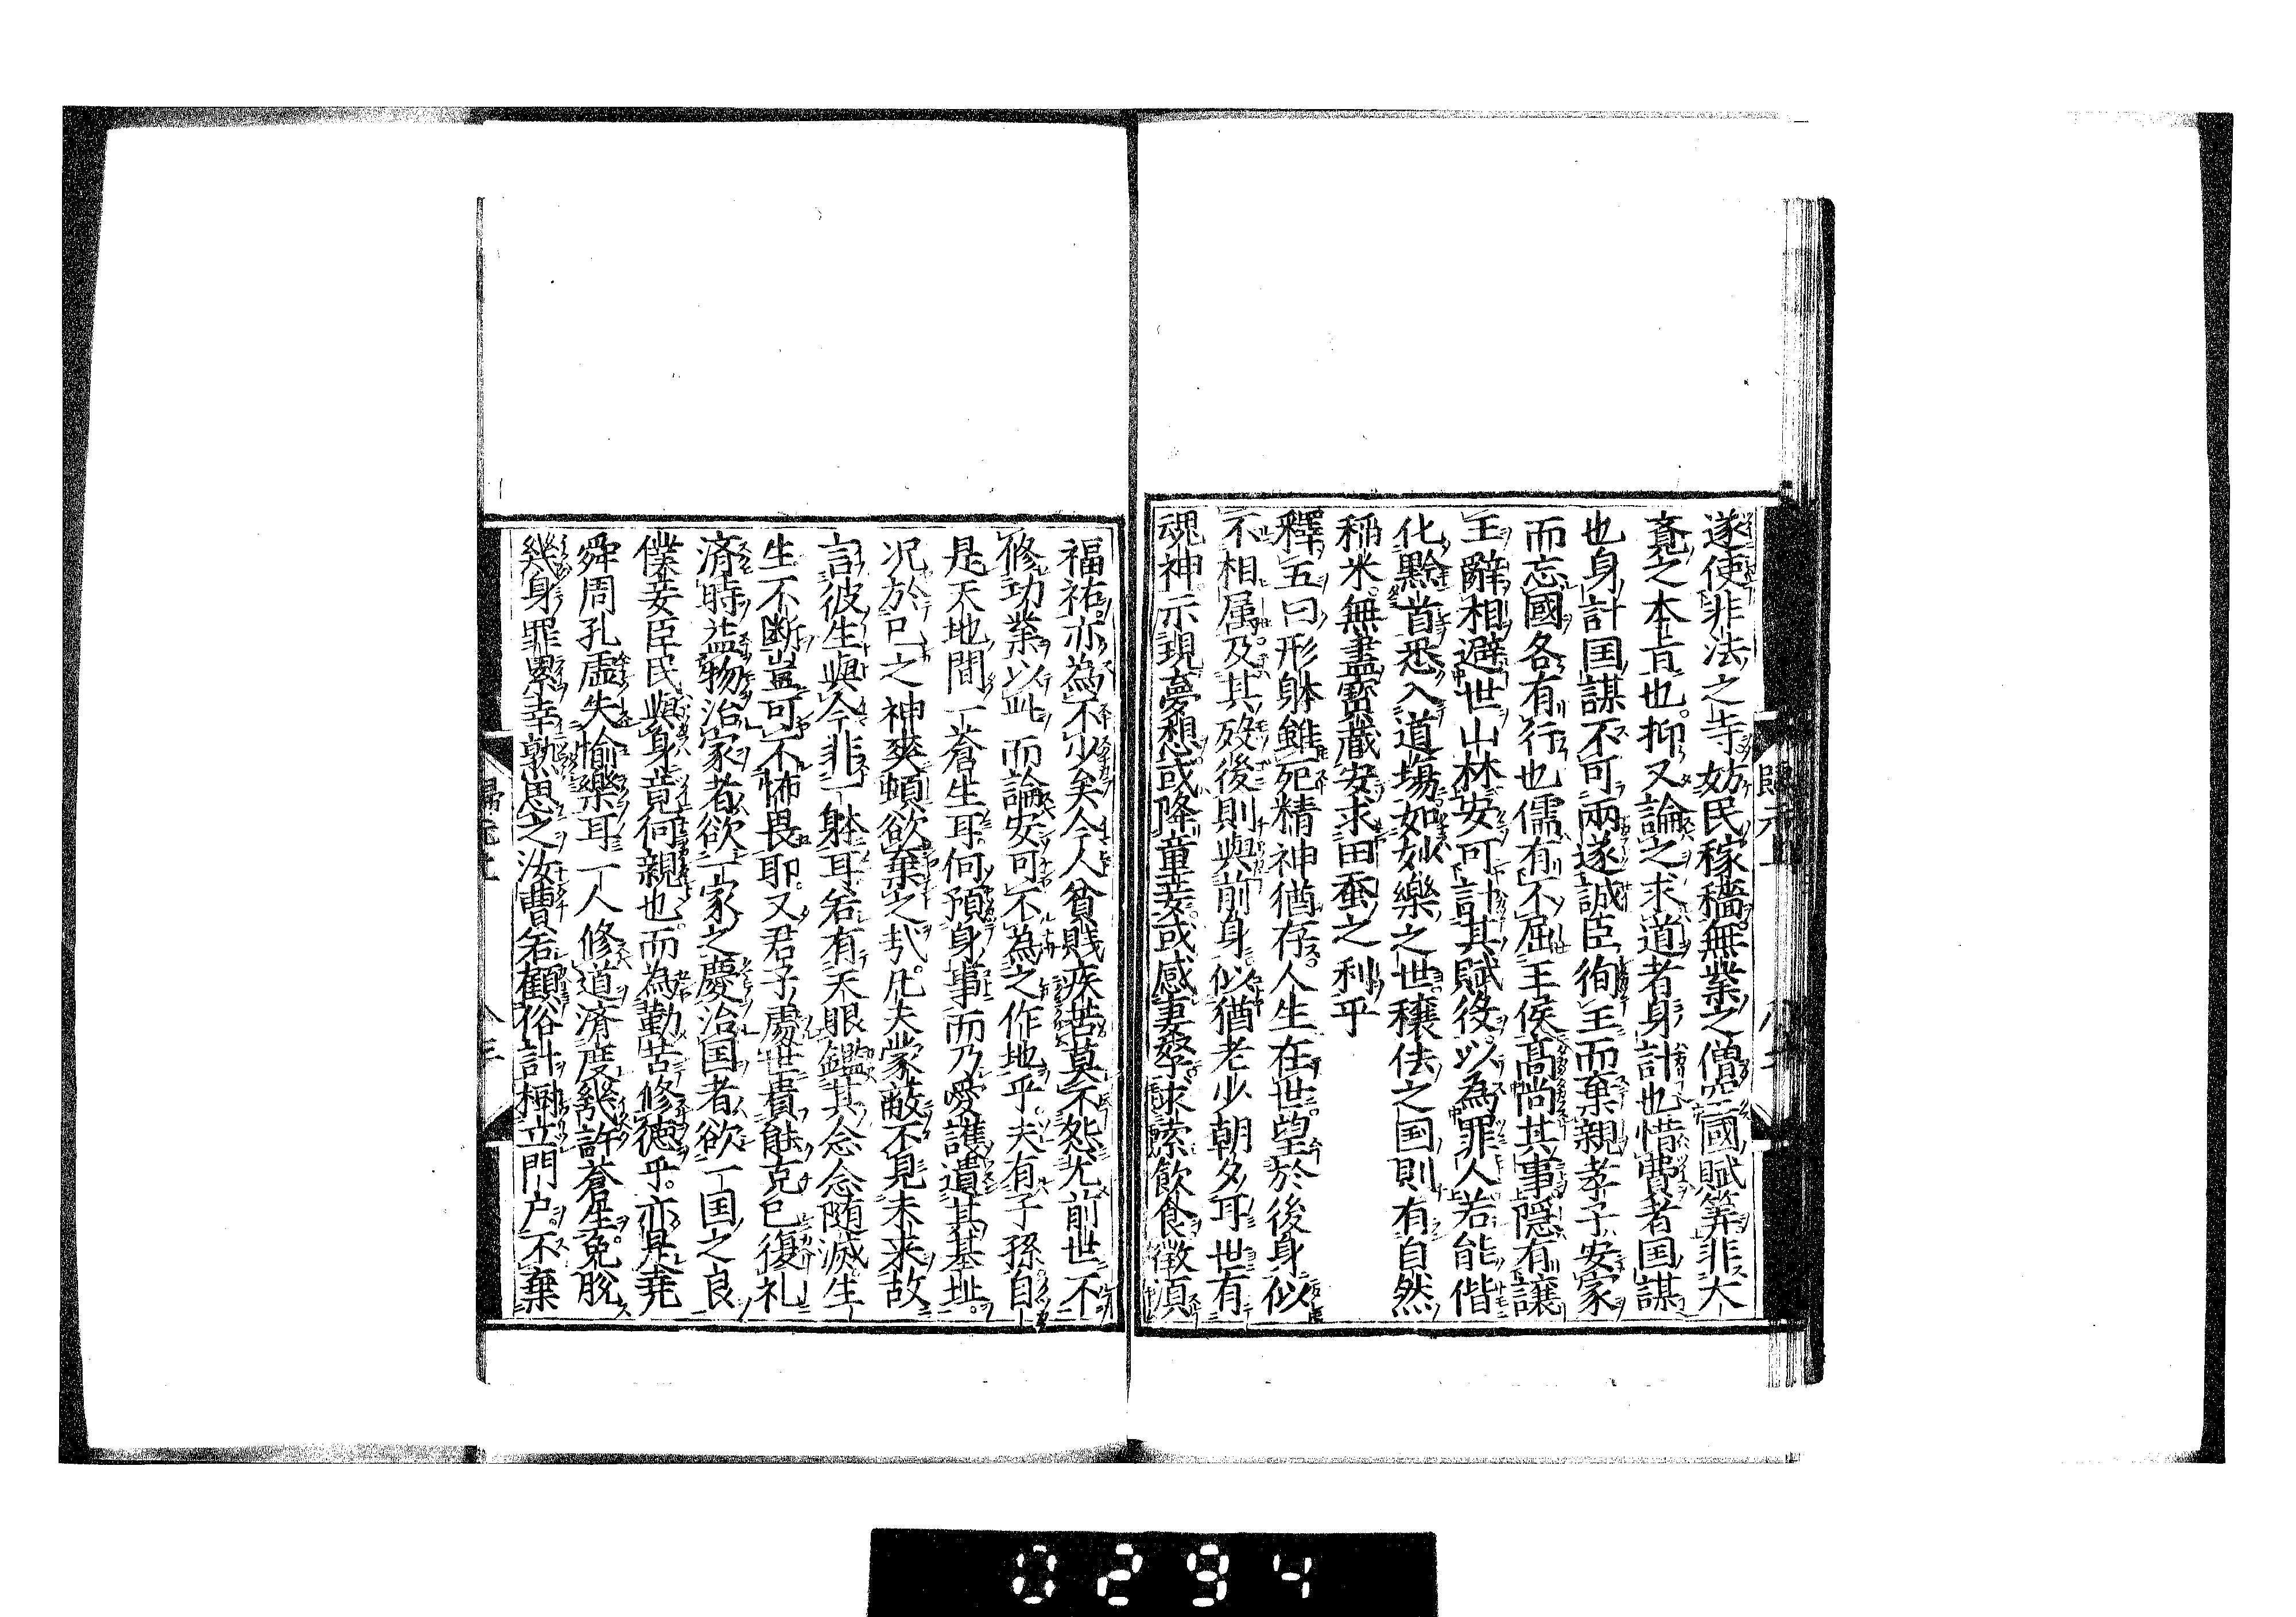 遂使非法之寺妨民稼穡無業之僧空國賦筭非大
覺之本旨也抑又論之求道者身計也惜費者国謀
也身計国謀不可兩遂誠臣徇王而棄親孝子安家
而忘國各有行也儒有不屈王侯髙尚其事隠有讓
王辭相避世山林安可計其賦役以為罪人若能偕
化黔首悉入道場如妙樂之世穣佉之国則有自然
稲米無盡寳蔵安求田蚕之利乎
釋五曰形躰雖死精神猶存人生在世望於後身似
不相属及其歿後則與前身似猶老少朝夕耳世有
魂神示現夢想或降童妾或感妻孥求索飲食徴須
福祐亦為不少矣今人貧賎疾苦莫不怨尤前世不
修功業以此而論安可不為之作地乎夫有子孫自
是天地間一蒼生耳何預身事而乃愛護遺其基址
况於己之神爽頓欲棄之㢤凡夫蒙蔽不見未来故
言彼生與今非一躰耳若有天眼鑑其念念随滅生
生不断豈可不怖畏耶又君子處世貴能克己復礼
済時益物治家者欲一家之慶治国者欲一国之良
僕妾臣民與身竟何親也而為勤苦修徳乎亦是堯
舜周孔虚失愉樂耳一人修道濟度幾許蒼生免脱
幾身罪累幸孰思之汝曹若顧俗計樹立門户不棄
0294